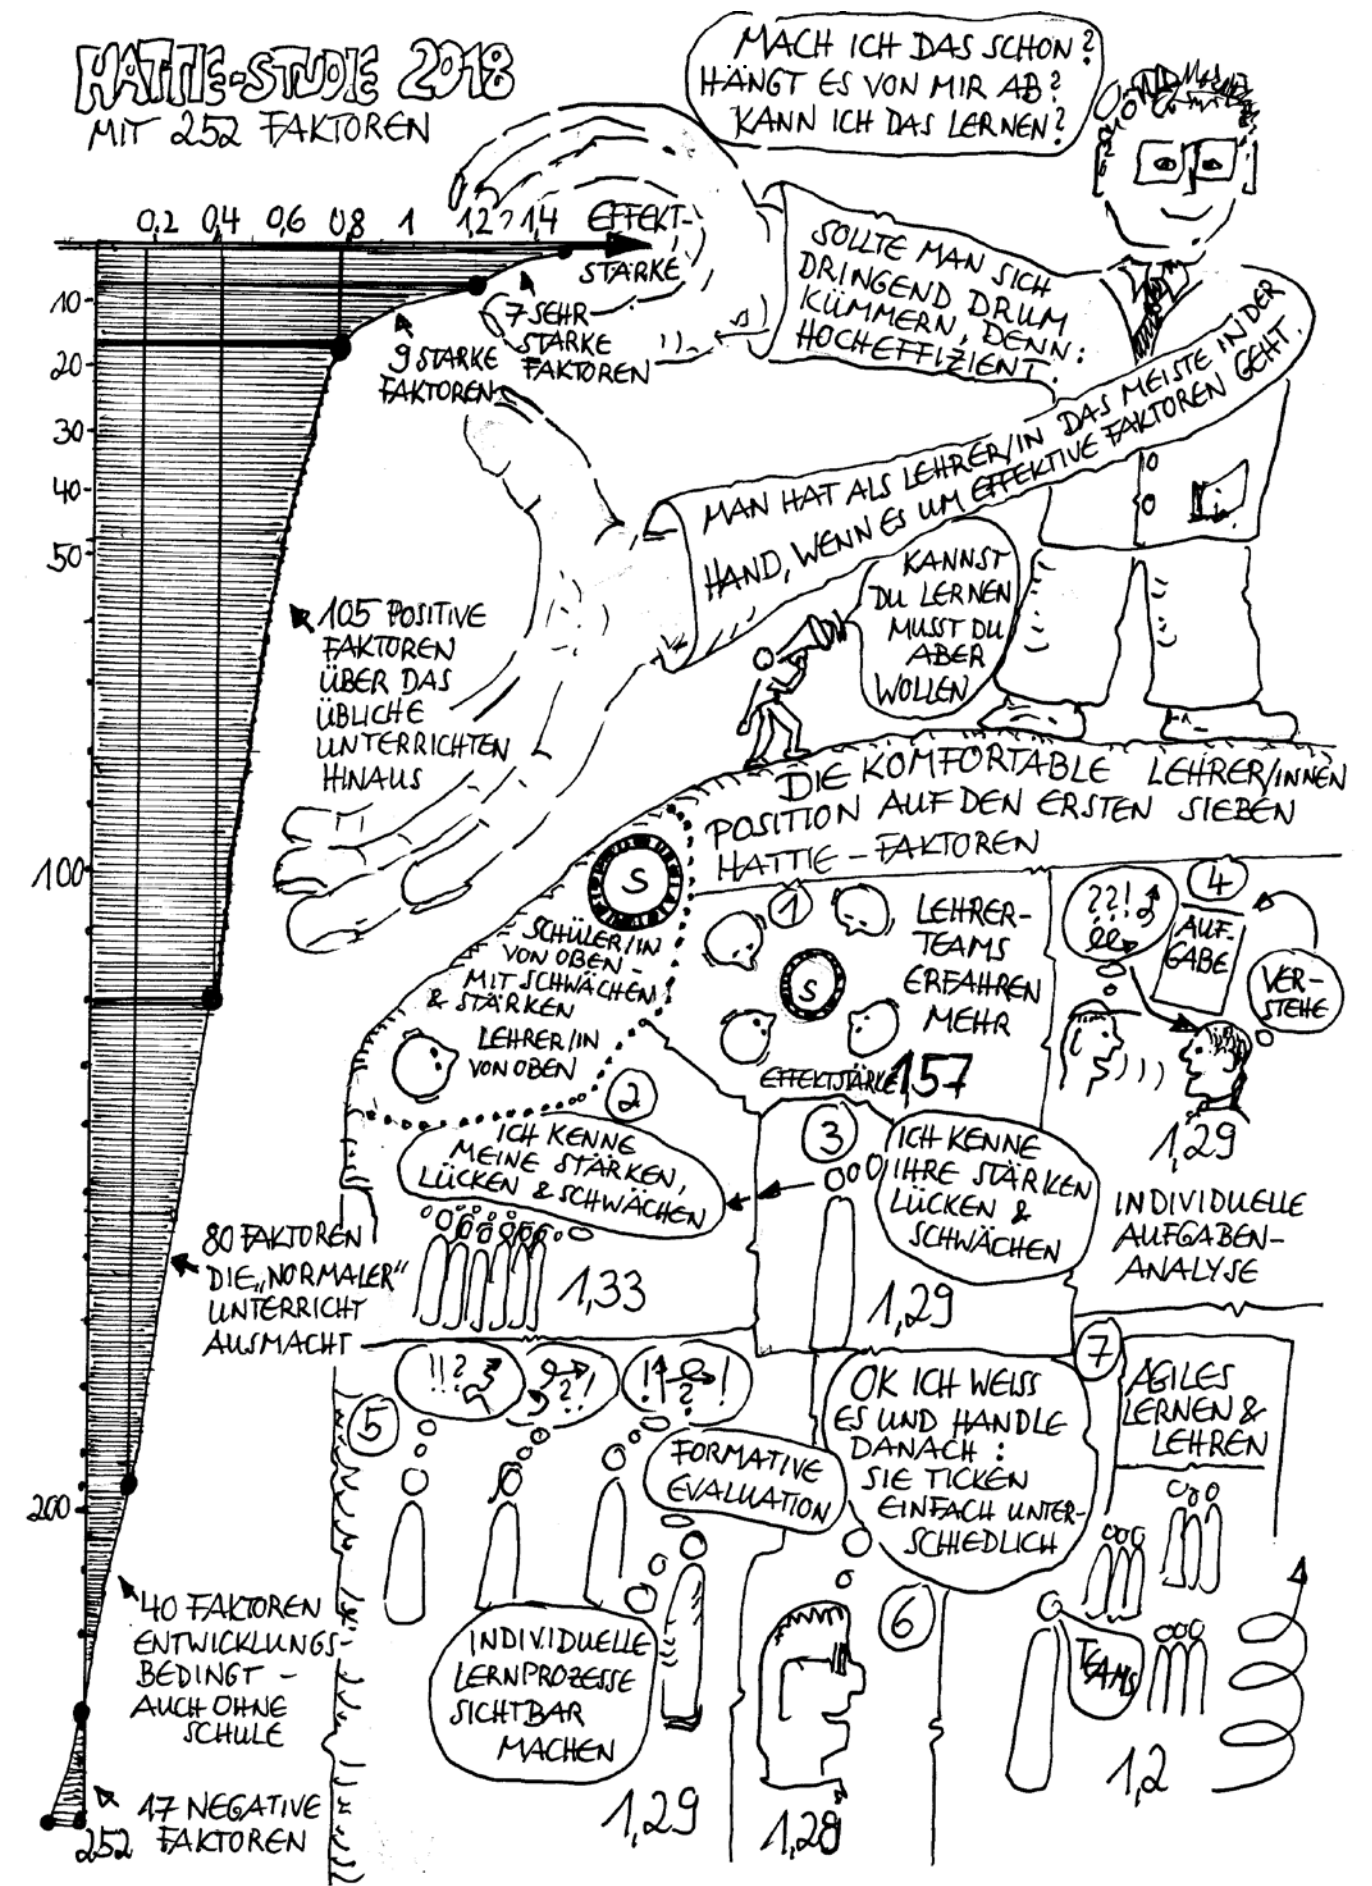 HATTIE-STUDIE 2018
MIT 252 FAKTOREN
MACH ICH DAS SCHON?
HÄNGT ES VON MIR AB?
KANN ICH DAS LERNEN?
0,2 0,4 0,6 0,8 1 1,2 1,4 EFFEKT-
STÄRKE
10
20
30
40
50
100
200
252
7 SEHR
STARKE
FAKTOREN
9 STARKE
FAKTOREN
SOLLTE MAN SICH
DRINGEND DRUM
KÜMMERN, DENN:
HOCHEFFIZIENT.
MAN HAT ALS LEHRER/IN DAS MEISTE IN DER
HAND, WENN ES UM EFFEKTIVE FAKTOREN GEHT.
KANNST
DU LERNEN
MUSST DU
ABER
WOLLEN
105 POSITIVE
FAKTOREN
ÜBER DAS
ÜBLICHE
UNTERRICHTEN
HINAUS
DIE KOMFORTABLE LEHRER/INNEN
POSITION AUF DEN ERSTEN SIEBEN
HATTIE-FAKTOREN
S
SCHÜLER/IN
VON OBEN -
MIT SCHWÄCHEN
& STÄRKEN
LEHRER/IN
VON OBEN
1
S
LEHRER-
TEAMS
ERFAHREN
MEHR
EFFEKTSTÄRKE 1,57
4
??!
AUF-
GABE
VER-
STEHE
1,29
INDIVIDUELLE
AUFGABEN-
ANALYSE
2
ICH KENNE
MEINE STÄRKEN,
LÜCKEN & SCHWÄCHEN
1,33
3
ICH KENNE
IHRE STÄRKEN
LÜCKEN &
SCHWÄCHEN
1,29
80 FAKTOREN
DIE „NORMALER“
UNTERRICHT
AUSMACHT
5
!!?
?!
!?!
FORMATIVE
EVALUATION
INDIVIDUELLE
LERNPROZESSE
SICHTBAR
MACHEN
1,29
OK ICH WEISS
ES UND HANDLE
DANACH:
SIE TICKEN
EINFACH UNTER-
SCHIEDLICH
6
1,28
7
AGILES
LERNEN &
LEHREN
TEAMS
1,2
40 FAKTOREN
ENTWICKLUNGS-
BEDINGT -
AUCH OHNE
SCHULE
17 NEGATIVE
FAKTOREN